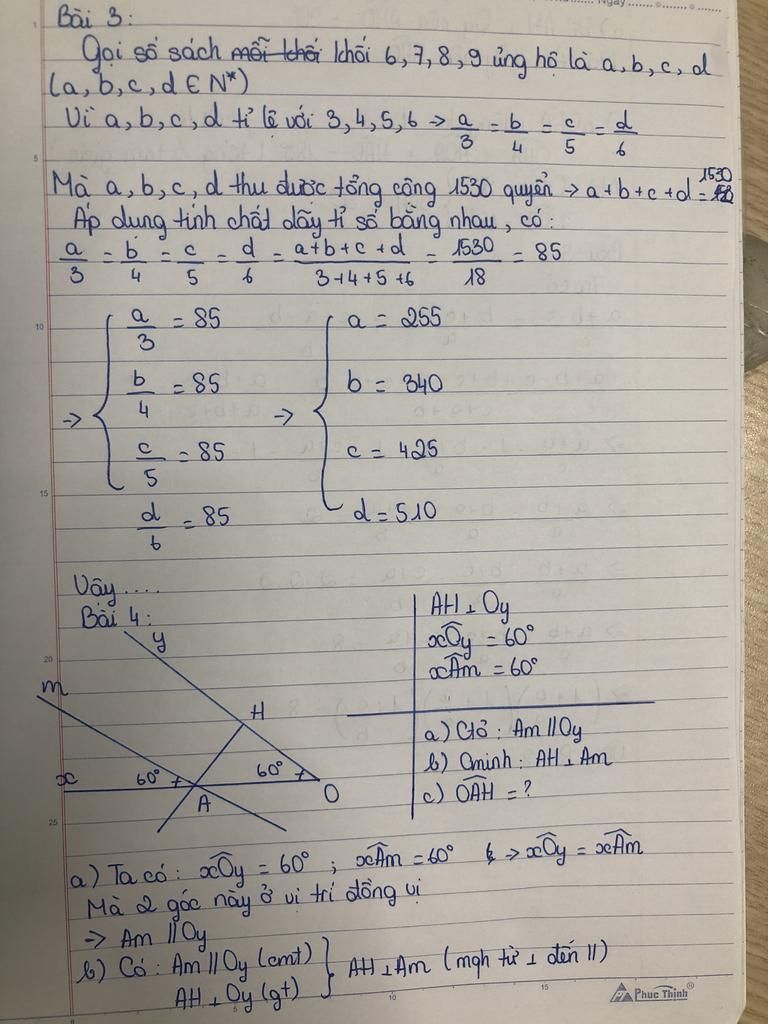 Ngày
Bài 3:
Gọi số sách mỗi khối khối 6, 7, 8, 9 ủng hộ là a, b, c, d
(a, b, c, d ∈ N*)
Vì a, b, c, d tỉ lệ với 3, 4, 5, 6 → a/3 = b/4 = c/5 = d/6
Mà a, b, c, d thu được tổng cộng 1530 quyển → a + b + c + d = 1530
Áp dụng tính chất dãy tỉ số bằng nhau, có:
a/3 = b/4 = c/5 = d/6 = (a+b+c+d)/(3+4+5+6) = 1530/18 = 85
a/3 = 85 a = 255
b/4 = 85 b = 340
→ →
c/5 = 85 c = 425
d/6 = 85 d = 510
Vậy ....
Bài 4:
y
m
H
x
60°
60°
A
O
AH ⊥ Oy
xÔy = 60°
xÂm = 60°
a) Ctỏ : Am // Oy
b) Cminh : AH ⊥ Am
c) OÂH = ?
a) Ta có : xÔy = 60° ; xÂm = 60° → xÔy = xÂm
Mà 2 góc này ở vị trí đồng vị
→ Am // Oy
b) Có : Am // Oy (cmt) } AH ⊥ Am (mqh từ ⊥ đến //)
AH ⊥ Oy (gt)
5
10
15
20
25
5
10
15
Phuc Thinh®